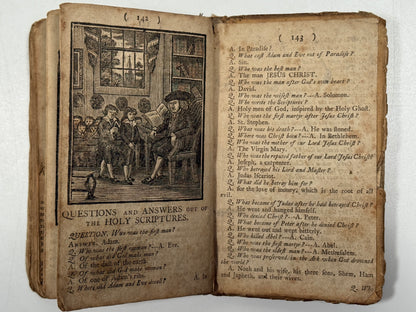 ( 142 )
QUESTIONS AND ANSWERS OUT OF
THE HOLY SCRIPTURES.
QUESTION. Who was the first man?
ANSWER. Adam.
Q. Who was the first woman?—A. Eve.
Q. Of what did God make man?
A. Of the dust of the earth.
Q. Of what did God make woman?
A. Of one of Adam's ribs.
Q. Where did Adam and Eve dwell?
A. In
( 143 )
A. In Paradise.
Q. What cast Adam and Eve out of Paradise?
A. Sin.
Q. Who was the best man?
A. The man JESUS CHRIST.
Q. Who was the man after God's own heart?
A. David.
Q. Who was the wisest man?—A. Solomon.
Q. Who wrote the Scriptures?
A. Holy men of God, inspired by the Holy Ghost.
Q. Who was the first martyr after Jesus Christ?
A. St. Stephen.
Q. What was his death?—A. He was stoned.
Q. Where was Christ born?—A. In Bethlehem.
Q. Who was the mother of our Lord Jesus Christ?
A. The Virgin Mary.
Q. Who was the reputed father of our Lord Jesus Christ?
A. Joseph, a carpenter.
Q. Who betrayed his Lord and Master?
A. Judas Iscariot.
Q. What did he betray him for?
A. for the love of money, which is the root of all
evil.
Q. What became of Judas after he had betrayed Christ?
A. He went and hanged himself.
Q. Who denied Christ?—A. Peter.
Q. What became of Peter after he denied Christ?
A. He went out and wept bitterly.
Q. Who killed Abel?—A. Cain.
Q. Who was the first martyr?—A. Abel.
Q. Who was the oldest man?—A. Methuselem.
Q. Who were preserved in the Ark when God drowned
the world?
A. Noah and his wife, his three sons, Shem, Ham
and Japheth, and their wives.